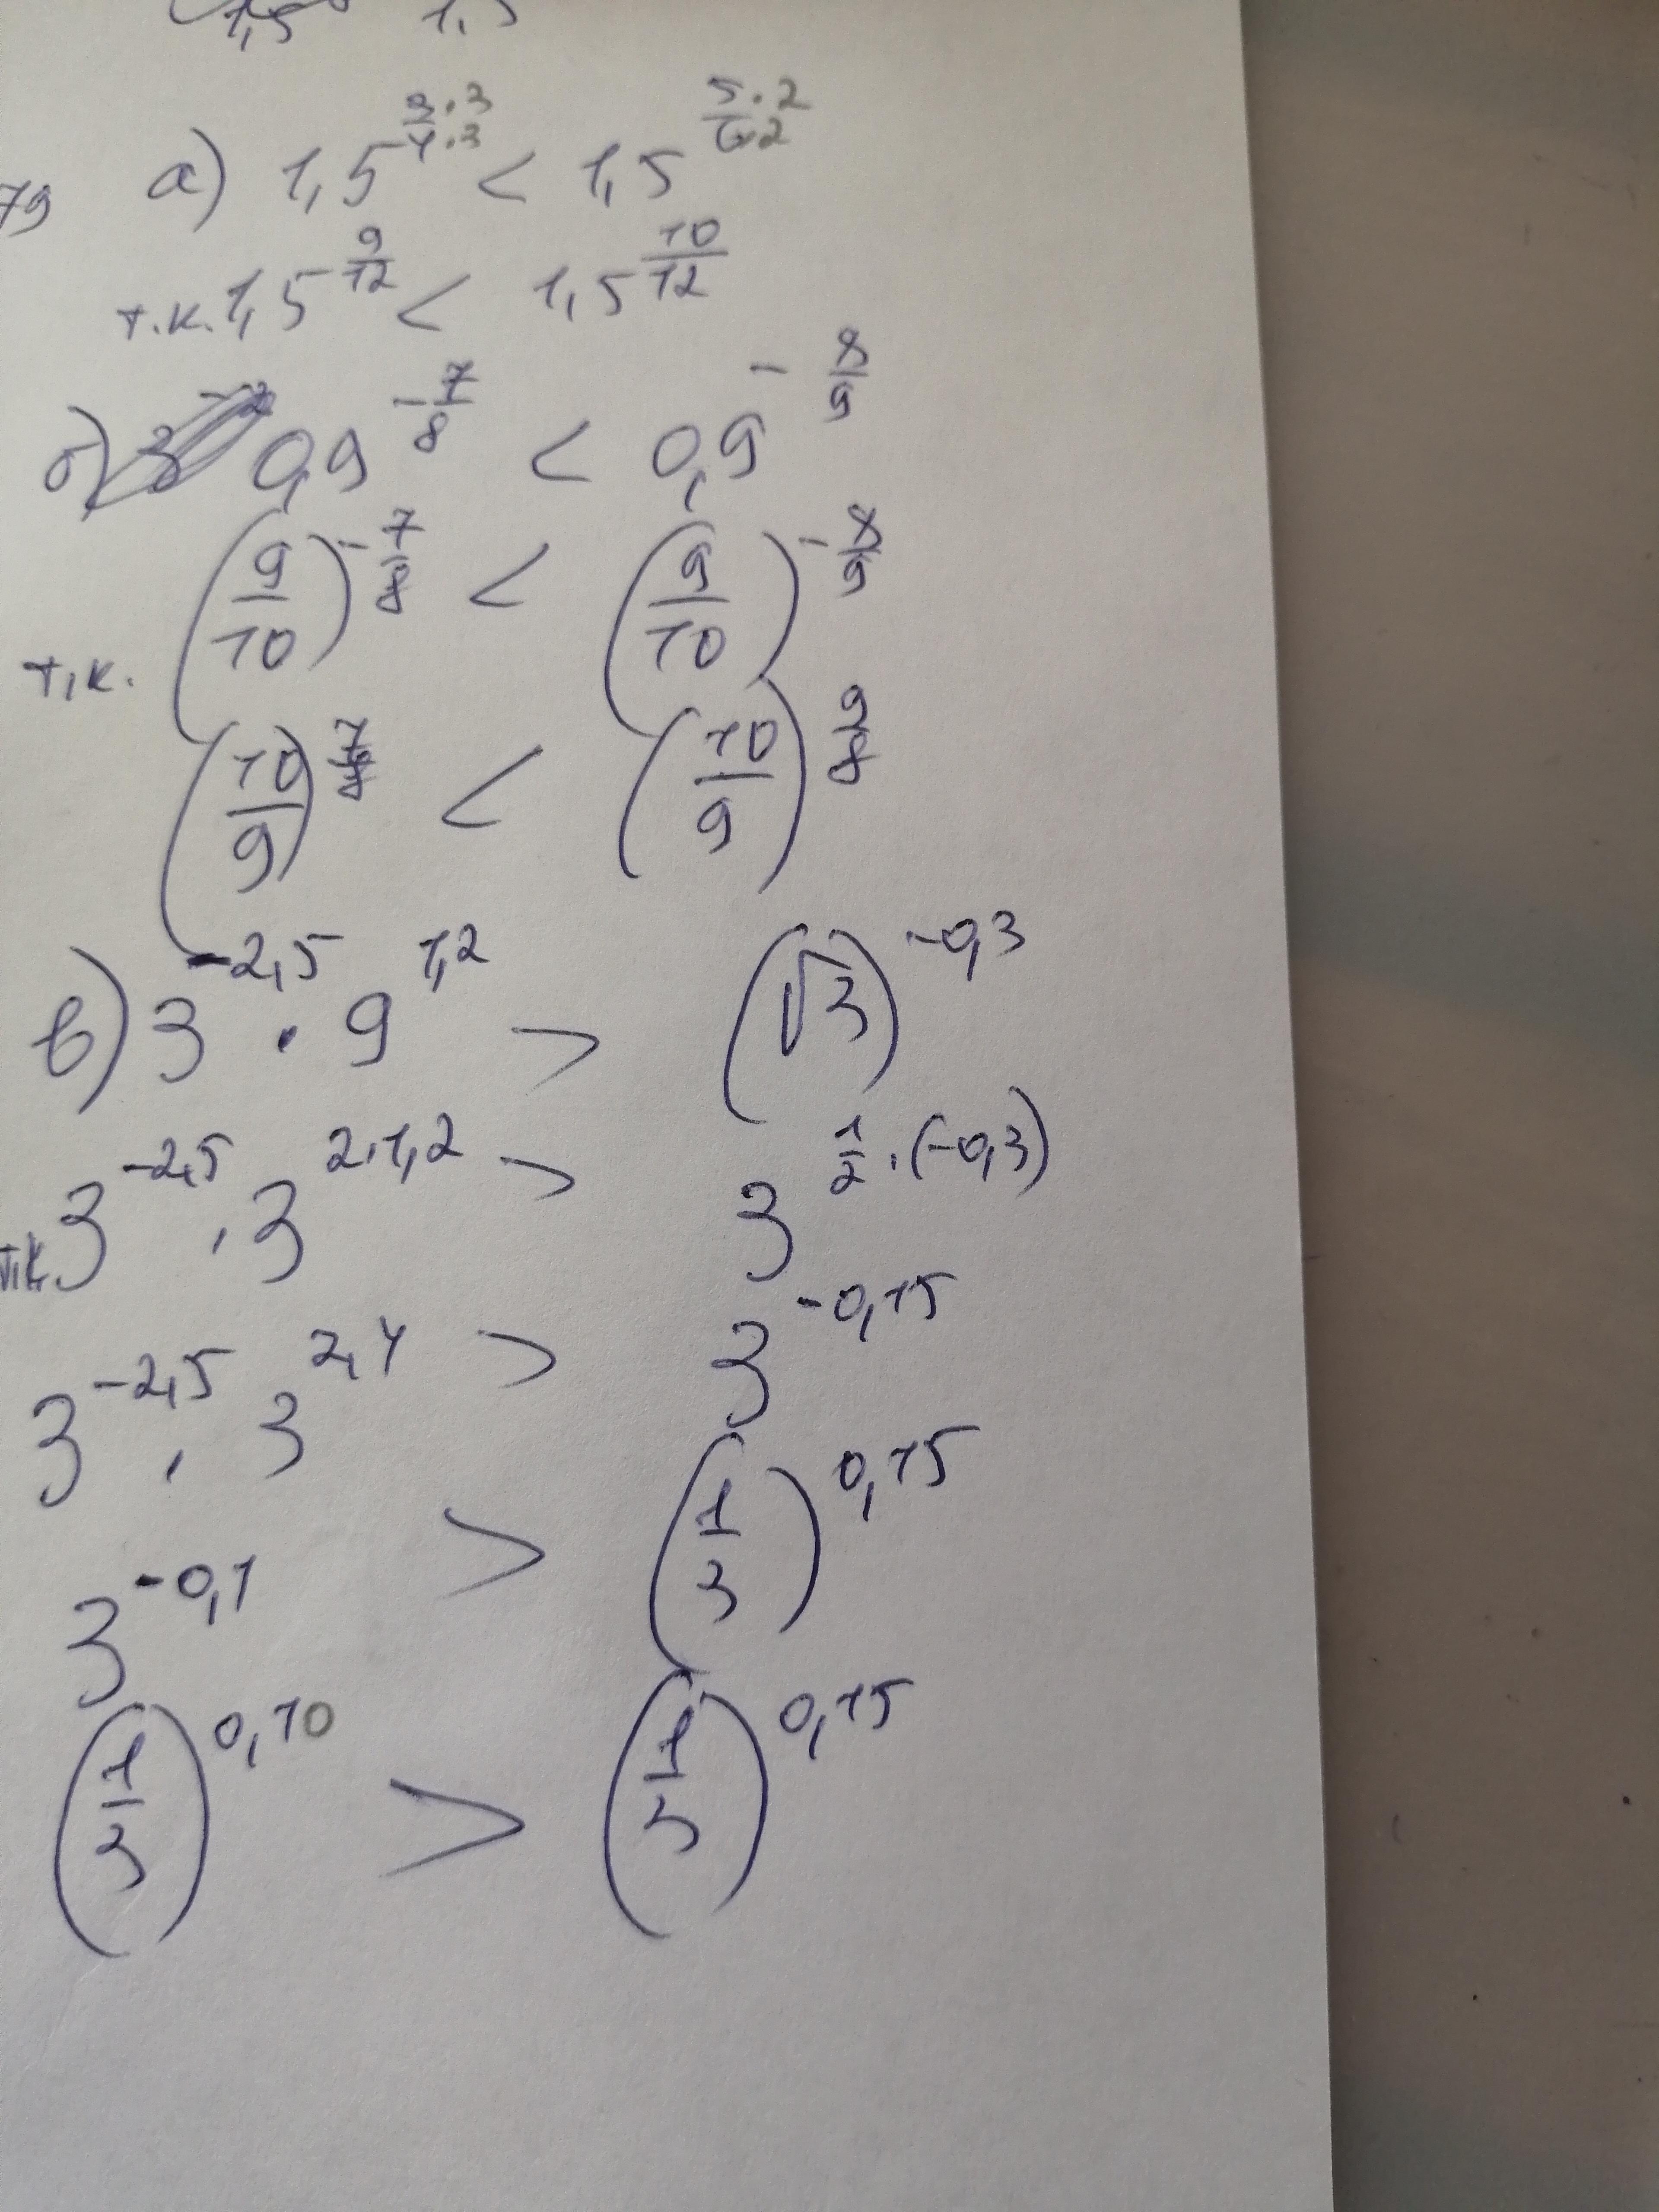 1,5 1,5
79 а) 1,5^(3·3/4·3) < 1,5^(5·2/6·2)
т.к. 1,5^(9/12) < 1,5^(10/12)
б) 0,9^(-7/8) < 0,9^(-8/9)
т.к. (9/10)^(-7/8) < (9/10)^(-8/9)
(10/9)^(7/8) < (10/9)^(9/8)
в) 3^(-2,5) · 9^(1,2) > (√3)^(-0,3)
т.к. 3^(-2,5) · 3^(2·1,2) > 3^(1/2·(-0,3))
3^(-2,5) · 3^(2,4) > 3^(-0,15)
3^(-0,1) > (1/3)^(0,15)
(1/3)^(0,10) > (1/3)^(0,15)